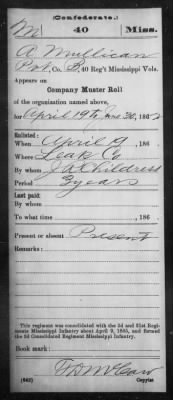 (Confederate.)
M 40 Miss.
A. Mullican
Pvt, Co. B, 40 Reg't Mississippi Vols.
Appears on
Company Muster Roll
of the organization named above,
for April 19th, June 30, 1862
Enlisted:
When April 9, 186
Where Leak Co
By whom J R Childress
Period 3 years
Last paid:
By whom
To what time , 186
Present or absent Present
Remarks:
This regiment was consolidated with the 3d and 31st Regiments Mississippi Infantry about April 9, 1865, and formed the 3d Consolidated Regiment Mississippi Infantry.
Book mark:
(642) Copyist.